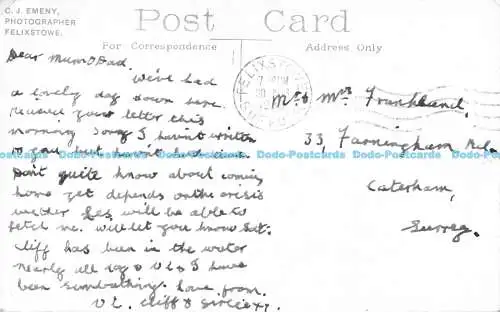 C. J. EMENY,
PHOTOGRAPHER
FELIXSTOWE.
Post Card
For Correspondence
Address Only
Dear Mum & Dad.
We've had
a lovely day down here
received your letter this
morning sorry I havn't written
to you but havn't had time
Dont quite know about coming
home yet depends on the crisis
wether Les will be able to
fetch me. will let you know Sat.
Cliff has been in the water
nearly all day & Vi & I have
been sunbathing. Love from.
Vi. Cliff &
FELIXSTOWE
Mr & Mrs Frankland,
33, Farningham
Caterham,
Surrey.
Dodo-Postcards Dodo-Postcards Dodo-Postcards Dodo-Postcards Dodo-Postcards